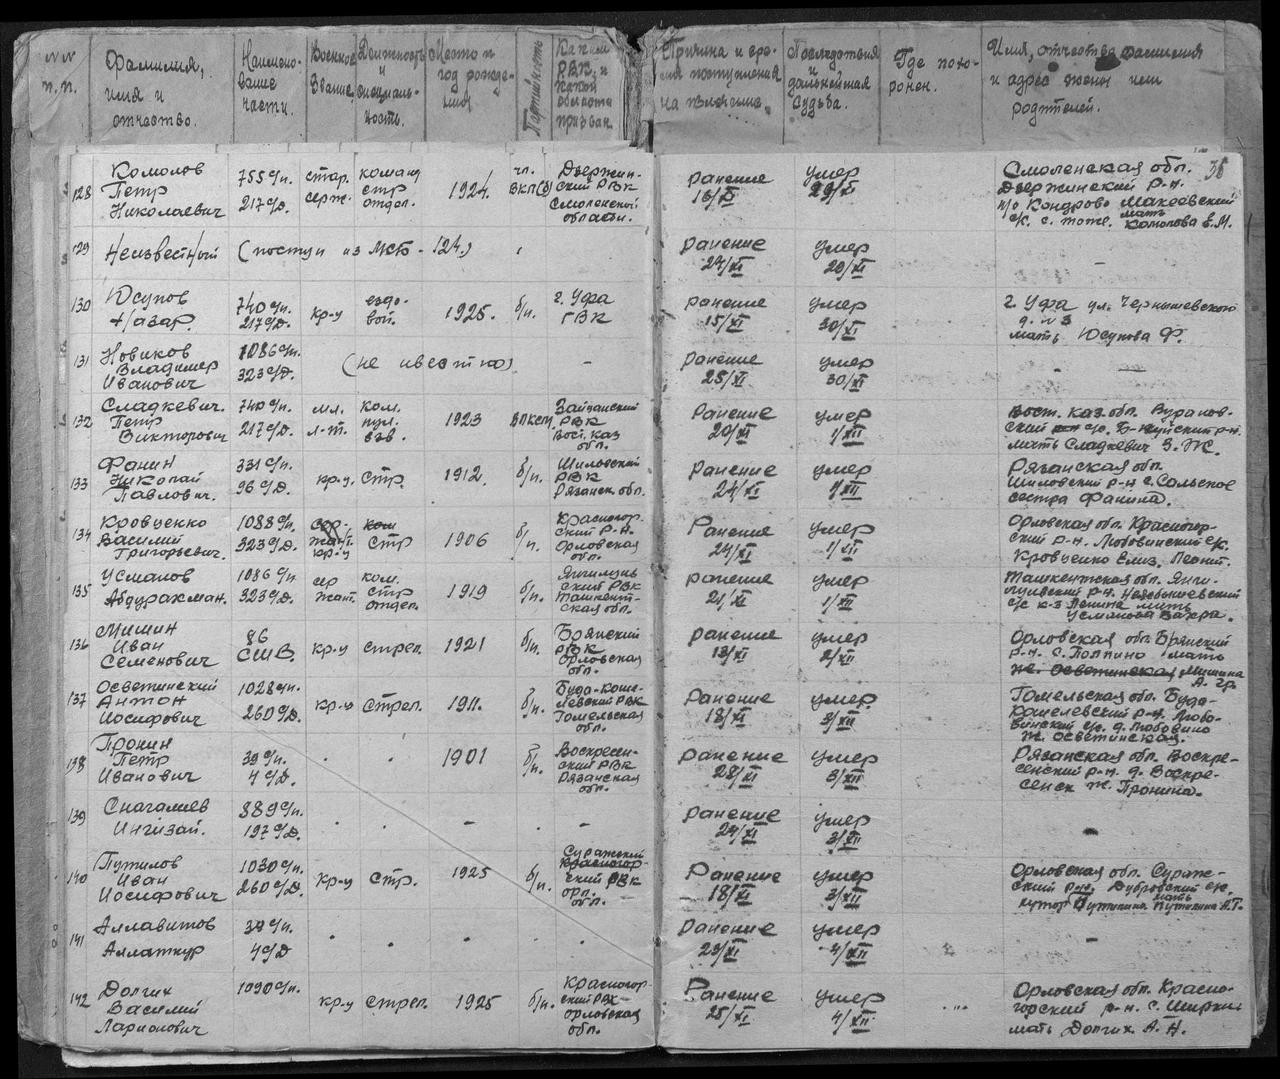 NN п.п.
Фамилия, имя и отчество.
Наимено-вание части.
Военное звание
Должность и специаль-ность.
Место и год рожде-ния
Партийность
Каким РВК и какой области призван
Причина и вре-мя поступления на лечение.
Последствия и дальнейшая судьба.
Где похо-ронен.
Имя, отчество, фамилия и адрес жены или родителей.
36
128 Комолов Петр Николаевич
755 с/п. 217 с/д.
стар. серж.
команд стр отдел.
1924.
чл. ВКП(б)
Дзержин-ский РВК Смоленской области.
ранение 16/XI
умер 29/XI
Смоленская обл. Дзержинский р-н. п/о Кондрово Макеевский с/с. с. тоже. мать Комолова Е.М.
129 Неизвестный (поступи из МСБ - 124.)
ранение 24/XI
умер 20/XI
—
130 Юсупов Назар.
740 с/п. 217 с/д.
кр-ц
ездо-вой.
1925.
б/п.
г. Уфа ГВК
ранение 15/XI
умер 30/XI
г. Уфа ул. Чернышевского д. N 3 мать Юсупова Ф.
131 Новиков Владимер Иванович
1086 с/п. 323 с/д.
(не ивестно)
—
ранение 25/XI
умер 30/XI
—
132 Сладкевич. Петр Викторович
740 с/п. 217 с/д.
мл. л-т.
ком. пул. взв.
1923
ВЛКСМ
Зайданский РВК Вост. каз обл.
Ранение 20/XI
умер 1/XII
Вост. каз обл.
мать Сладкевич З. Ж.
133 Фанин Николай Павлович.
331 с/п. 96 с/д.
кр-ц
стр.
1912.
б/п.
Шиловский РВК Рязанск обл.
Ранение 24/XI
умер 1/XII
Рязанская обл. Шиловский р-н с. Сольское сестра Фанина.
134 Кровценко Василий Григорьевич.
1088 с/п. 323 с/д.
кр-ц
стр
1906
б/п.
Красногор-ский Р-Н. Орловская обл.
Ранение 24/XI
умер 1/XII
Орловская обл. Красногор-ский р-н. Любовинский с/с. Кровценко Елиз. Леонт.
135 Усманов Абдурахман.
1086 с/п 323 с/д.
сер жант.
ком. стр отдел.
1919
б/п.
Янгиюль ский РВК Ташкент-ская обл.
ранение 21/XI
умер 1/XII
Ташкентская обл. Янги-
с/с к-з Ленина мать Усманова Вахра.
136 Мишин Иван Семенович
86 СШВ.
кр-ц
стрел.
1921
б/п.
Брянский РВК Орловская обл.
ранение 18/XI
умер 2/XII
Орловская обл. Брянский р-н. с. Полпино мать Ж. Осветинская Мишина А. Гр.
137 Осветинский Антон Иосифович
1028 с/п. 260 с/д.
кр-ц
Стрел.
1911.
б/п.
Буда-коше-левский РВК Гомельская обл.
Ранение 18/XI
умер 3/XII
Гомельская обл. Буда-Кошелевский р-н. Любо-винский с/с. д. Любовино ж. Осветинская.
138 Пронин Петр Иванович
39 с/п. 4 с/д.
1901
б/п.
Воскресен-ский РВК Рязанская обл.
Ранение 28/XI
умер 3/XII
Рязанская обл. Воскре-сенский р-н. д. Воскре-сенск ж. Пронина.
139 Снагалиев Ингизай.
889 с/п. 197 с/д.
ранение 24/XI
умер 3/XII
—
140 Путилов Иван Иосифович
1030 с/п. 260 с/д.
Кр-ц
Стр.
1925
б/п.
Суражский Красногор-ский РВК орл. обл.
Ранение 18/XI
умер 3/XII
Орловская обл. Сураж-ский р-н. Дубровский с/с. мать хутор Путилина Путилина А.Т.
141 Аллавитов Аллаткур
39 с/п. 4 с/д
Ранение 23/XI
умер 4/XII
—
142 Долгих Василий Ларионович
1090 с/п.
кр-ц
стрел.
1925
б/п.
Красногор-ский РВК орловская обл.
Ранение 25/XI
умер 4/XII
Орловская обл. Красно-горский р-н. с. Ширки мать Долгих А. Н.